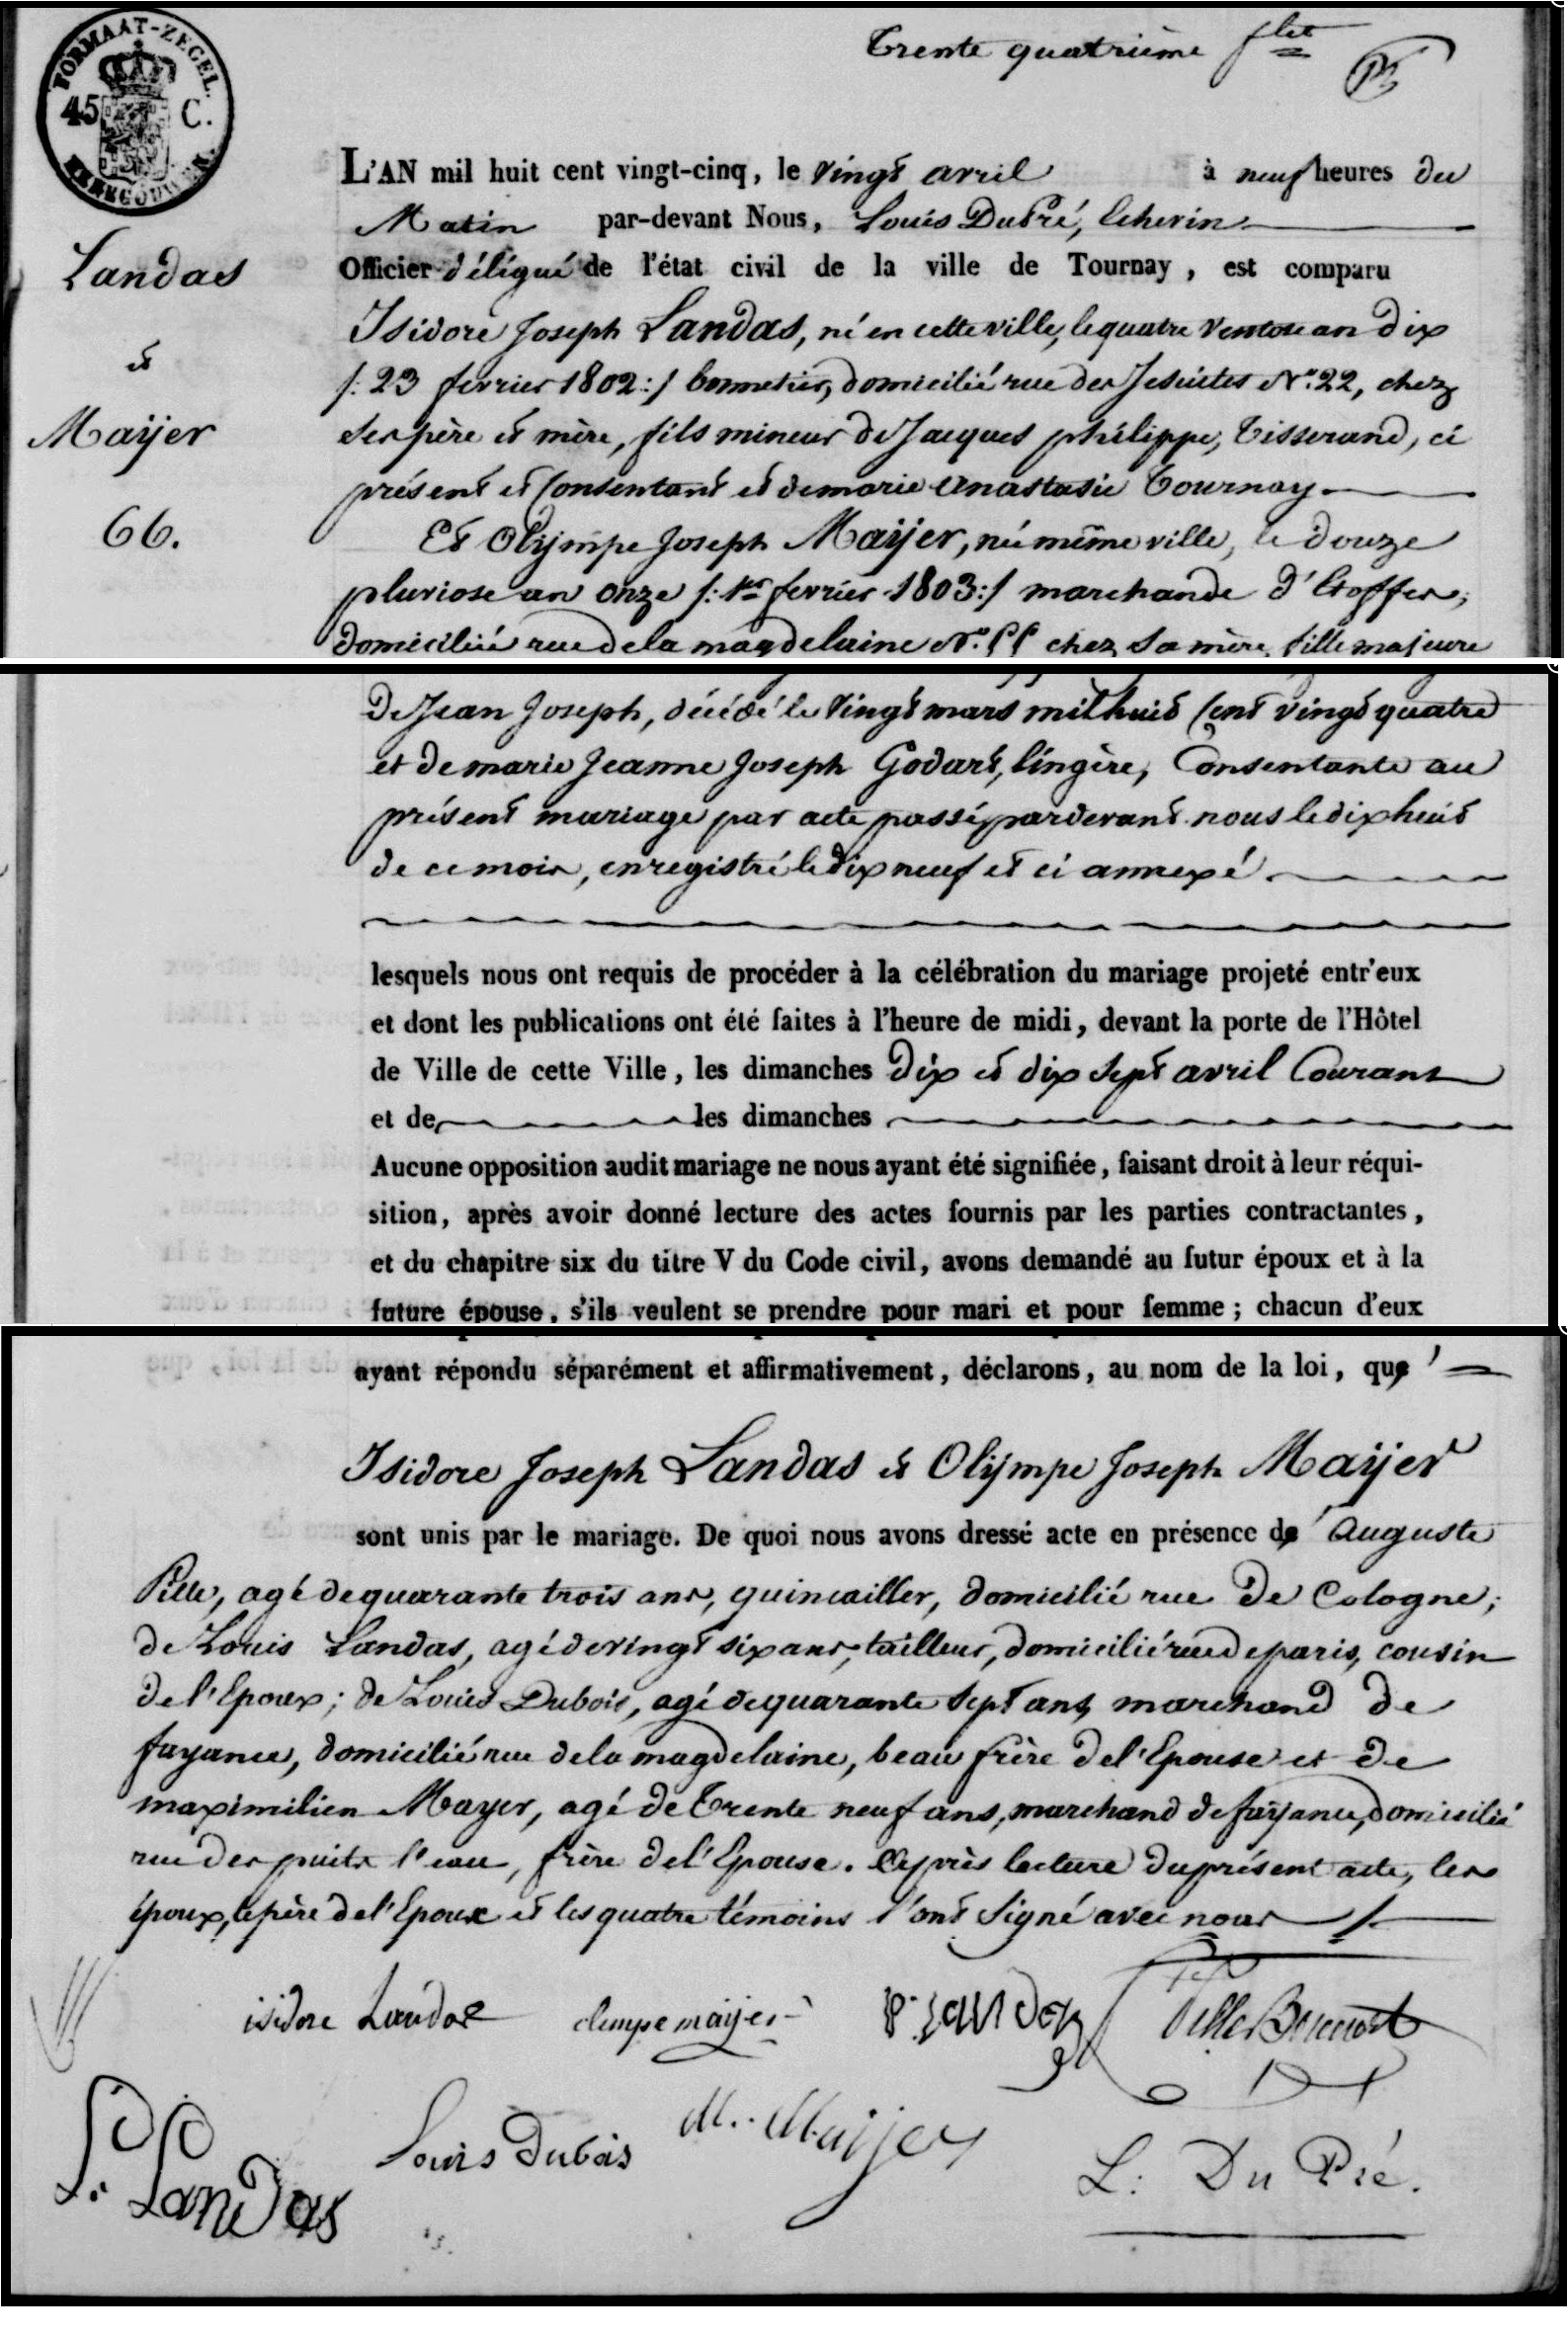 FORMAAT-ZEGEL.
45 C.
HENEGOUWEN.
Trente quatrième flet
L'AN mil huit cent vingt-cinq, le Vingt avril à neuf heures du
Matin par-devant Nous, Louis DuPré, Echevin
Officier déligué de l'état civil de la ville de Tournay, est comparu
Landas
Isidore Joseph Landas, né en cette ville, le quatre Ventose an dix
&
/: 23 fevrier 1802 :/ bonnetier, domicilié rue des Jesuites N.° 22, chez
Maÿer
ses père et mère, fils mineur de Jacques philippe, Tisserand, ci
présent et Consentant et de marie Anastasie Tournay
66.
Et Olÿmpe Joseph Maÿer, née même ville, le douze
pluviose an onze /: 1er fevrier 1803 :/ marchande d'Etoffes,
domiciliée rue de la magdelaine N.° 55 chez sa mère, fille majeure
De Jean Joseph, décédé le Vingt mars mil huit Cent Vingt quatre
et de marie Jeanne Joseph Godart, lingère, Consentante au
présent mariage par acte passé pardevant nous le dix huit
de ce mois, enregistré le dix neuf et ci annexé.
lesquels nous ont requis de procéder à la célébration du mariage projeté entr'eux
et dont les publications ont été faites à l'heure de midi, devant la porte de l'Hôtel
de Ville de cette Ville, les dimanches dix et dix Sept avril Courant
et de les dimanches
Aucune opposition audit mariage ne nous ayant été signifiée, faisant droit à leur réqui-
sition, après avoir donné lecture des actes fournis par les parties contractantes,
et du chapitre six du titre V du Code civil, avons demandé au futur époux et à la
future épouse, s'ils veulent se prendre pour mari et pour femme ; chacun d'eux
ayant répondu séparément et affirmativement, déclarons, au nom de la loi, que
Isidore Joseph Landas et Olÿmpe Joseph Maÿer
sont unis par le mariage. De quoi nous avons dressé acte en présence d' Auguste
Pille, agé de quarante trois ans, quincailler, domicilié rue De Cologne ;
de Louis Landas, agé de vingt six ans, tailleur, domicilié rue de paris, cousin
de l'Epoux ; de Louis Dubois, agé de quarante Sept ans, marchand de
fayance, domicilié rue de la magdelaine, beau frère de l'Epouse et de
maximilien Mayer, agé de Trente neuf ans, marchand de fayance, domicilié
rue des puits l'eau, frère de l'Epouse. Après lecture du présent acte, les
époux, le père de l'Epoux et les quatre témoins l'ont Signé avec nous
isidore Landas olimpe maÿer P. Landas Pille
L. Landas Louis Dubois M. Maijer L. Du Pré.